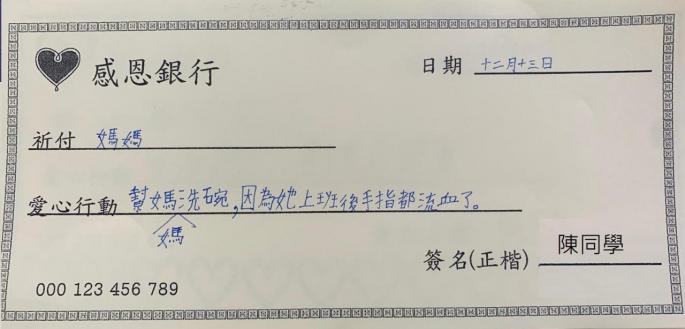 感恩銀行
日期 十二月十三日
祈付 媽媽
愛心行動 幫媽媽洗碗,因為她上班後手指都流血了。
簽名(正楷) 陳同學
000 123 456 789